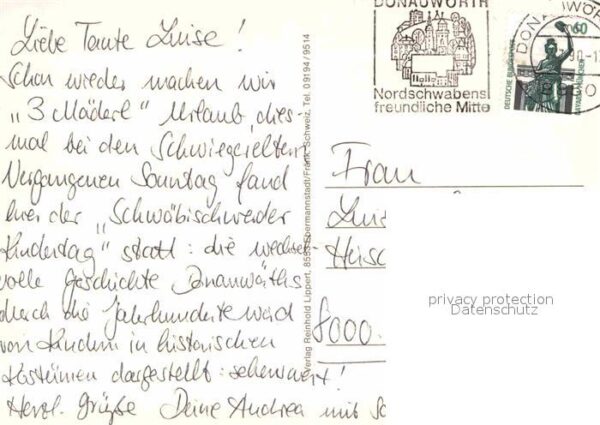 Liebe Tante Luise!
Schon wieder machen wir
„3 Mäderl" Urlaub, dies-
mal bei den Schwiegereltern.
Vergangenen Sonntag fand
hier der „Schwäbischwerder
Kindertag" statt: die wechsel-
volle Geschichte Donauwörths
durch die Jahrhunderte wird
von Kindern in historischen
Kostümen dargestellt: sehenswert!
Herzl. Grüße Deine Andrea mit
Verlag Reinhold Lippert, 8553 Ebermannstadt/Fränk. Schweiz, Tel. 09194/9514
DONAUWÖRTH
Nordschwabens
freundliche Mitte
DONAUWÖR
60
DEUTSCHE BUNDESPOST
BAVARIA MÜNCHEN
Frau
8000
privacy protection
Datenschutz